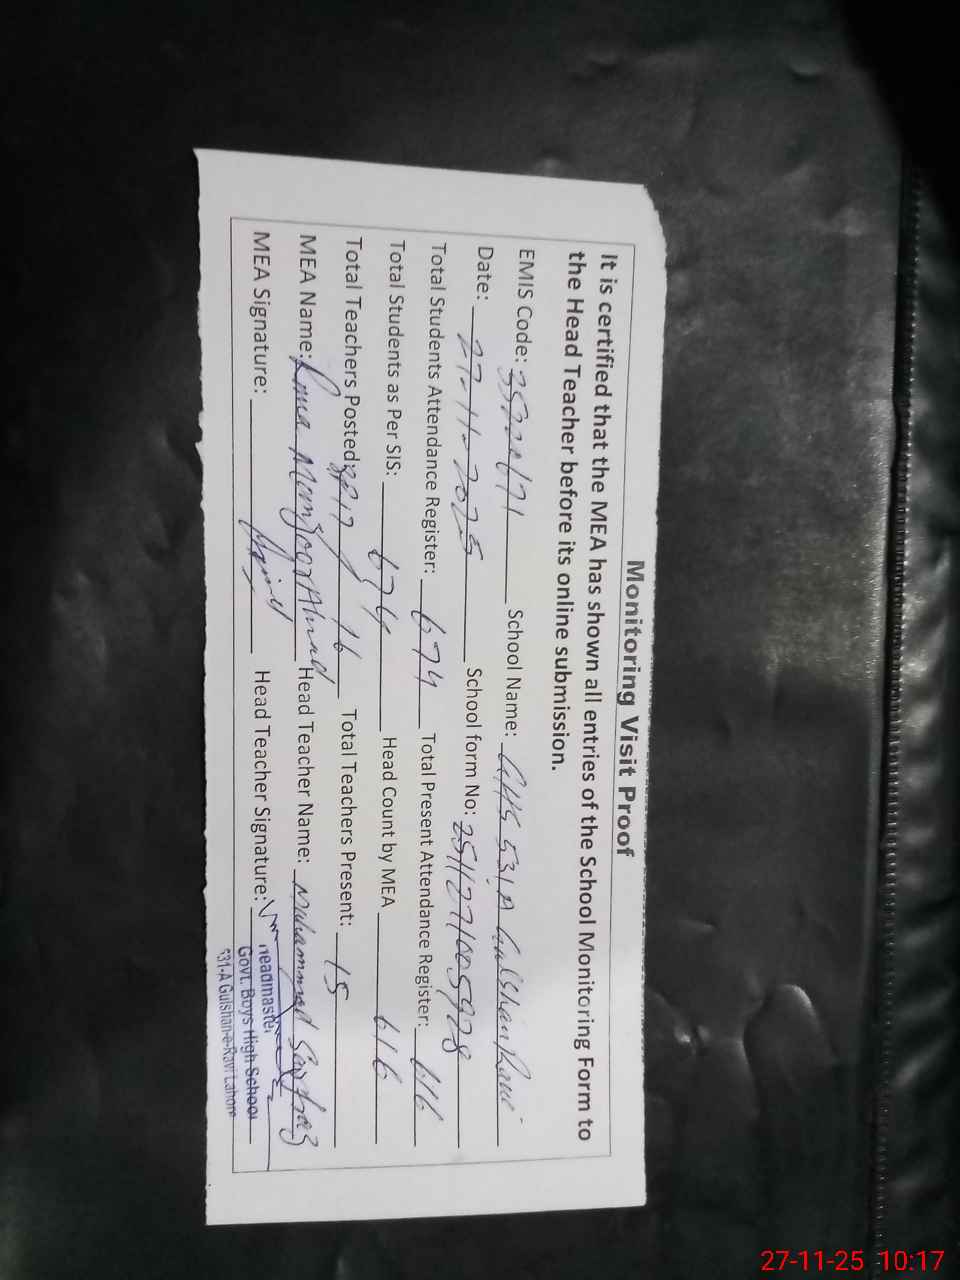 Monitoring Visit Proof
It is certified that the MEA has shown all entries of the School Monitoring Form to
the Head Teacher before its online submission.
EMIS Code: School Name: GHS 531, A Gulshan Ravi
Date: 27-11-2025 School form No: 251127
Total Students Attendance Register: 674 Total Present Attendance Register: 616
Total Students as Per SIS: 674 Head Count by MEA 616
Total Teachers Posted: 16 Total Teachers Present: 15
MEA Name: Rana Manzoor Ahmad Head Teacher Name: Muhammad Sarfraz
MEA Signature: Head Teacher Signature:
Headmaster
Govt. Boys High School
531-A Gulshan-e-Ravi Lahore
27-11-25 10:17